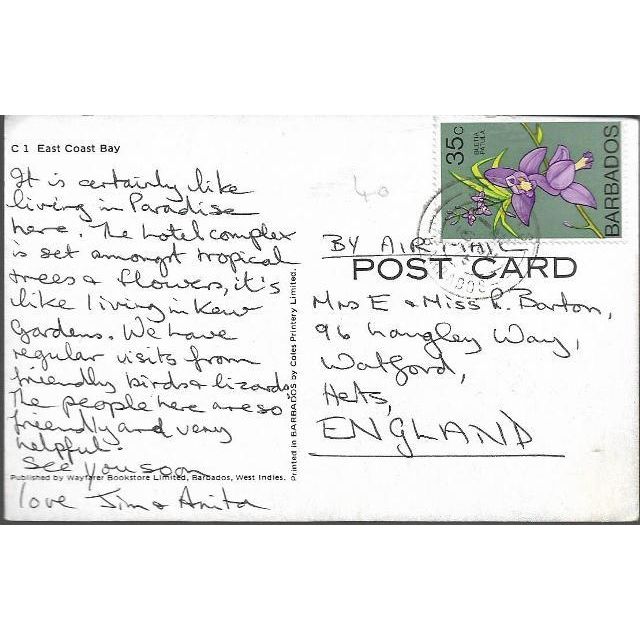 C 1 East Coast Bay
It is certainly like
living in Paradise
here. The hotel complex
is set amongst tropical
trees & flowers, it's
like living in Kew
Gardens. We have
regular visits from
friendly birds & lizards.
The people here are so
friendly and very
helpful.
See you soon
Published by Wayfarer Bookstore Limited, Barbados, West Indies.
love Jim & Anita
Printed in BARBADOS by Coles Printery Limited.
40
35c
BLETIA
PATULA
BARBADOS
BY AIR MAIL
POST CARD
Mrs E & Miss R. Barton,
96 Langley Way,
Watford,
Herts,
ENGLAND